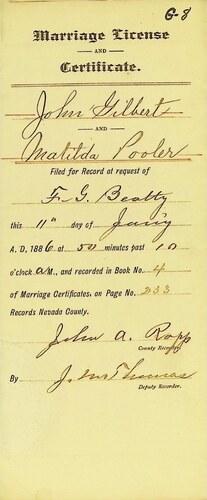 G-8
Marriage License
AND
Certificate.
John Gilbert
AND
Matilda Pooler
Filed for Record at request of
F. G. Beatty
this 11th day of
A. D. 1886 at 50 minutes past 10
o'clock A M., and recorded in Book No. 4
of Marriage Certificates, on Page No. 233
Records Nevada County.
John A. Rapp
County Recorder.
By Jno Thomas
Deputy Recorder.